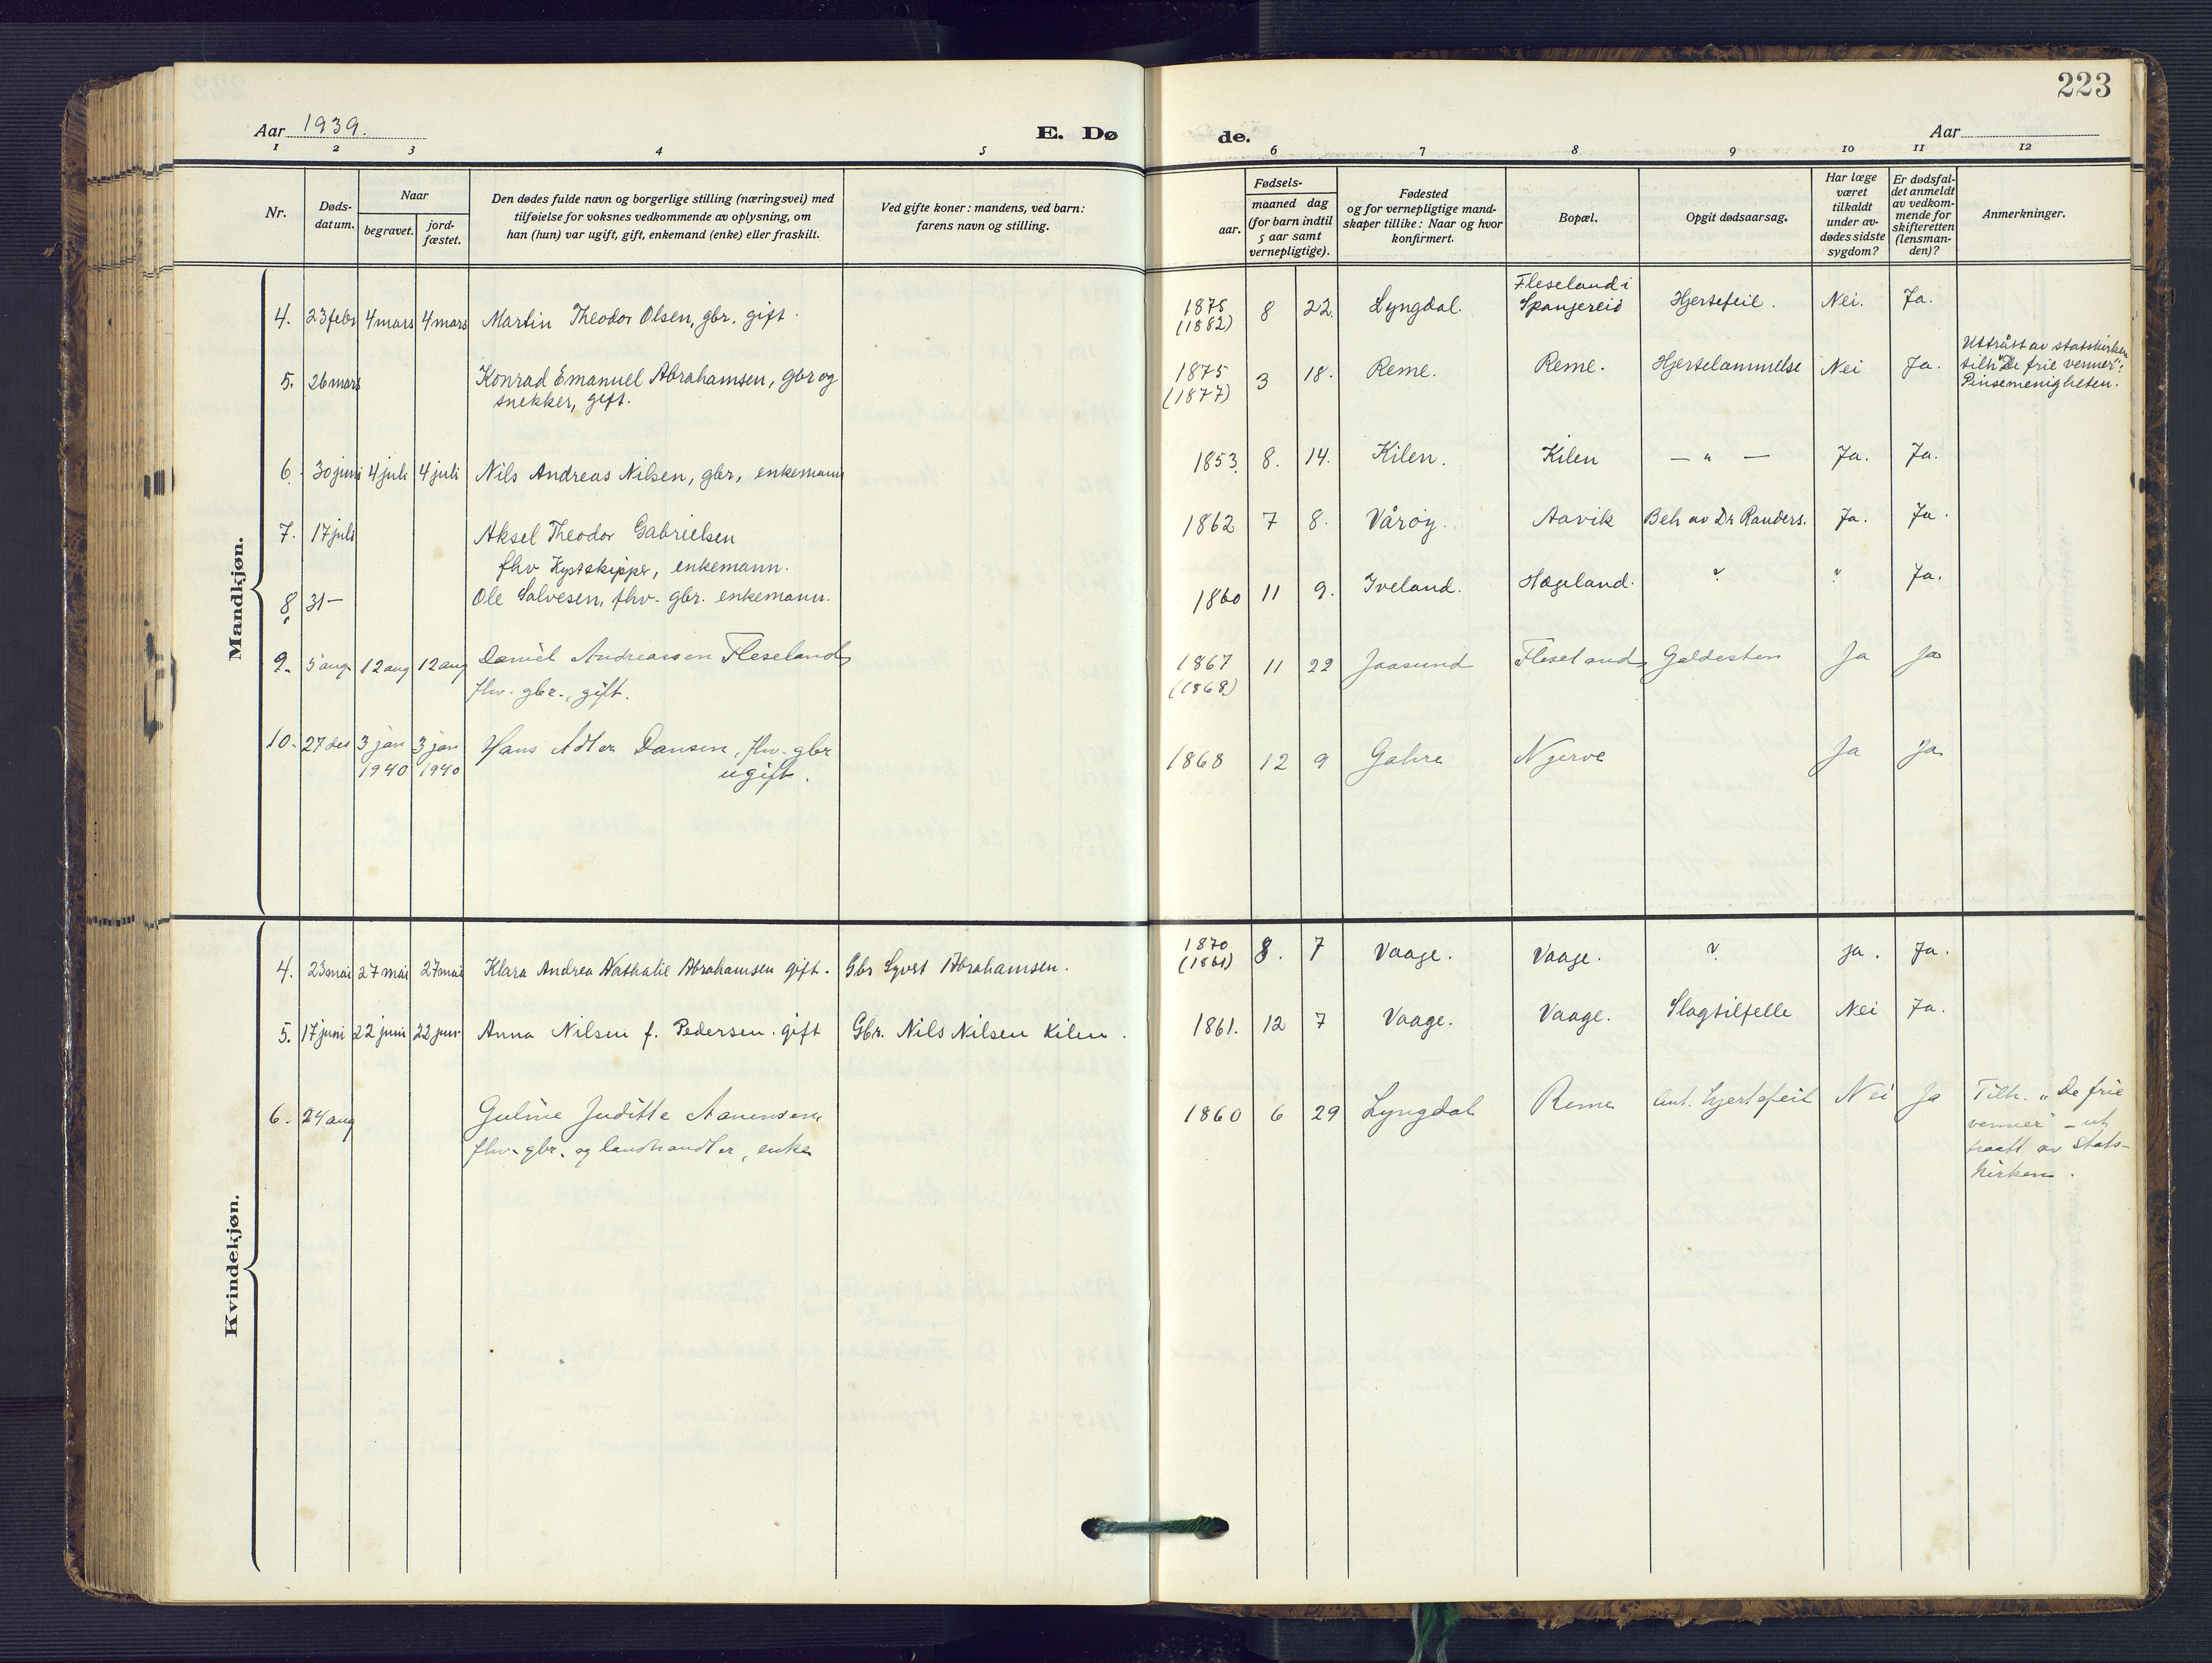 223
Aar 1939.
E. Dø
de.
Aar
1 2 3 4 5 6 7 8 9 10 11 12
Nr.
Døds-
datum.
Naar
begravet.
jord-
fæstet.
Den dødes fulde navn og borgerlige stilling (næringsvei) med
tilføielse for voksnes vedkommende av oplysning, om
han (hun) var ugift, gift, enkemand (enke) eller fraskilt.
Ved gifte koner: mandens, ved barn:
farens navn og stilling.
Fødsels-
aar.
maaned dag
(for barn indtil
5 aar samt
vernepligtige).
Fødested
og for vernepligtige mand-
skaper tillike: Naar og hvor
konfirmert.
Bopæl.
Opgit dødsaarsag.
Har læge
været
tilkaldt
under av-
dødes sidste
sygdom?
Er dødsfal-
det anmeldt
av vedkom-
mende for
skifteretten
(lensman-
den)?
Anmerkninger.
Mandkjøn.
4. 23 febr 4 mars 4 mars Martin Theodor Olsen, gbr. gift. 1875 8 22. Lyngdal. Fleseland i Hjertefeil. Nei. Ja.
(1882) Spangereid
5. 26 mars Konrad Emanuel Abrahamsen, gbr og 1875 3 18. Reme. Reme. Hjertelammelse Nei Ja. Uttrått av statskirken
snekker, gift. (1877) tilh "De frie venner":
Pinsemenigheten.
6. 30 juni 4 juli 4 juli Nils Andreas Nilsen, gbr, enkemann 1853. 8. 14. Kilen. Kilen — " — Ja. Ja.
7. 17 juli Aksel Theodor Gabrielsen 1862 7 8. Vårøy. Aavik Beh av Dr Randers. Ja. Ja.
fhv Kystskipper, enkemann.
8. 31 — Ole Salvesen, fhv. gbr. enkemann. 1860 11 9. Iveland. Hægeland. ? " Ja.
9. 5 aug 12 aug 12 aug Daniel Andreassen Fleseland, 1867 11 22 Jaasund Fleseland Galdesten Ja Ja
fhv. gbr., gift. (1868)
10. 27 des 3 jan 3 jan Hans Adler Dansen, fhv. gbr 1868 12 9 Gahre Njerve Ja Ja
1940 1940 ugift.
Kvindekjøn.
4. 23 mai 27 mai 27 mai Klara Andrea Nathalie Abrahamsen gift. Gbr Syvert Abrahamsen. 1870 8. 7 Vaage. Vaage. ? Ja. Ja.
(1861)
5. 17 juni 22 juni 22 juni Anna Nilsen f. Pedersen. gift Gbr. Nils Nilsen Kilen. 1861. 12 7 Vaage. Vaage. Slagtilfelle Nei Ja.
6. 24 aug Guline Juditte Aanensen, 1860 6 29 Lyngdal Reme Ant. hjertefeil Nei Ja Tilh. "De frie
fhv. gbr. og landhandler, enke venner" – ut
traatt av stats-
kirken.